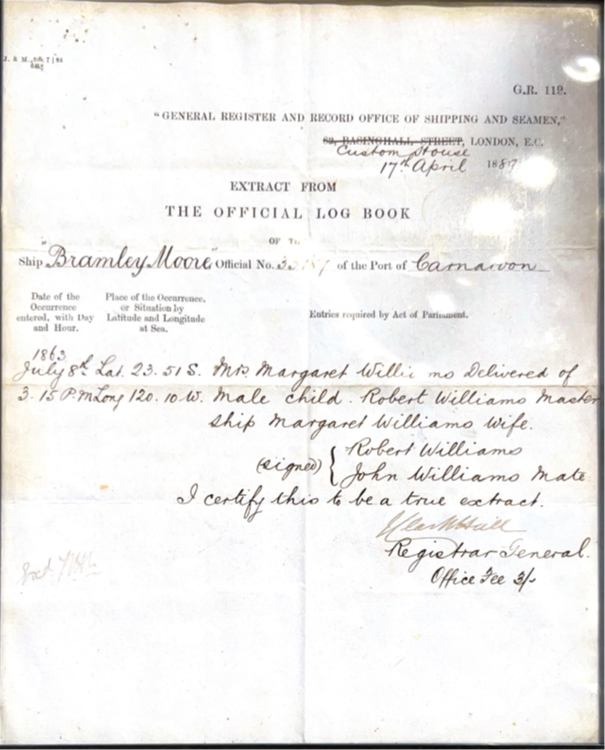 G.R. 119.
"GENERAL REGISTER AND RECORD OFFICE OF SHIPPING AND SEAMEN,"
82, BASINGHALL STREET, LONDON, E.C.
Custom House
17th April 1887
EXTRACT FROM
THE OFFICIAL LOG BOOK
OF
Ship "Bramley Moore" Official No. of the Port of Carnarvon
Date of the Occurrence entered, with Day and Hour.
Place of the Occurrence, or Situation by Latitude and Longitude at Sea.
Entries required by Act of Parliament.
1863
July 8th Lat. 23. 51 S. Mrs. Margaret Willi ms Delivered of
3. 15 P.m Long 120. 10 W. Male child. Robert Williams Master
ship Margaret Williams Wife.
(signed) { Robert Williams
John Williams Mate
I certify this to be a true extract.
Registrar General.
Office Fee 3/-